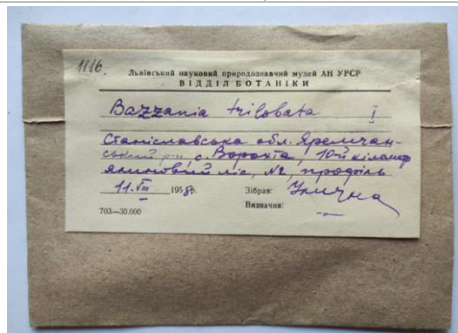 1116.
Львівський науковий природознавчий музей АН УРСР
ВІДДІЛ БОТАНІКИ
Bazzania trilobata I
Станіславська обл. Яремчан-
ський р-н, с. Ворохта, 10й кілометр
ялиновий ліс, №2,
11. VIII 1958р. Зібрав: Улична
703—30.000 Визначив: —„—